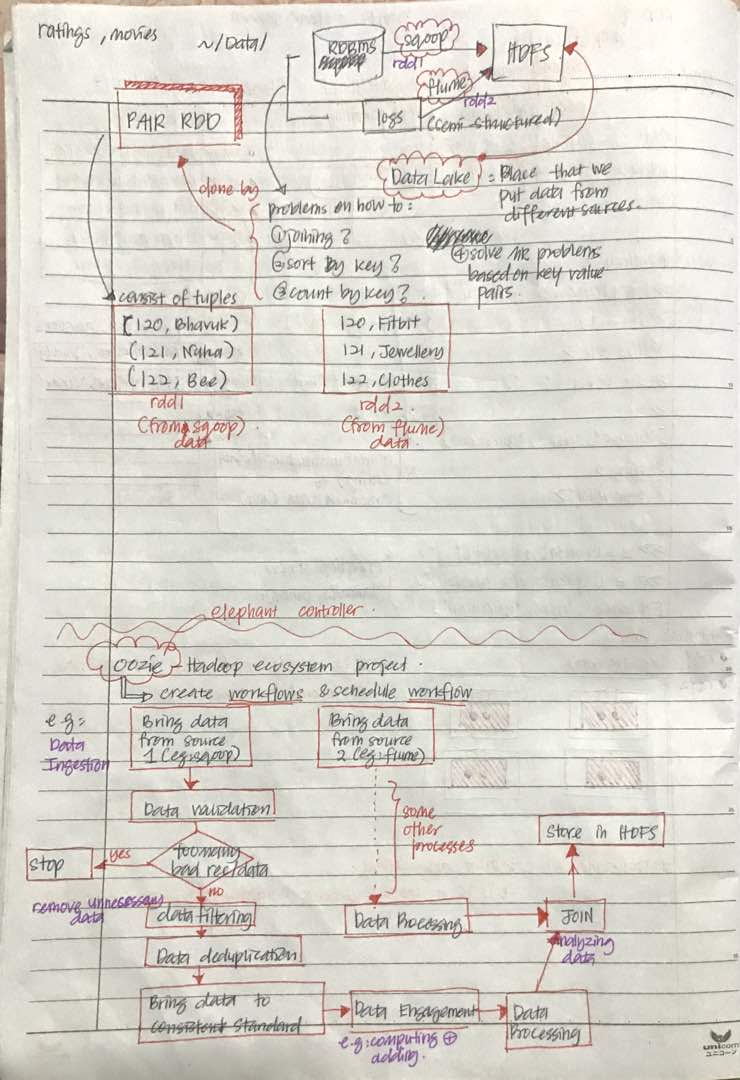 ratings, movies ~/Data/
RDBMS
sqoop
HDFS
rdd1
flume
rdd2
PAIR RDD
logs (semi structured)
Data Lake = Place that we
put data from
different sources.
done by
problems on how to:
① joining?
② sort by key?
③ count by key?
④ solve MR problems
based on key value
pairs.
consist of tuples
(120, Bhavuk)
(121, Nuha)
(122, Bee)
rdd1
(from sqoop)
data
120, Fitbit
121, Jewellery
122, Clothes
rdd2
(from flume)
data.
elephant controller.
oozie - Hadoop ecosystem project.
create workflows & schedule workflow
e.g:
Data
Ingestion
Bring data
from source
1 (eg: sqoop)
Bring data
from source
2 (eg: flume)
Data validation
some
other
processes
too many
bad rec/data
yes
stop
no
remove unnecessary
data
data filtering
Data deduplication
Bring data to
consistent standard
Data Engagement
e.g: computing ⊕
adding.
Data
Processing
Data Processing
JOIN
Analyzing
data
Store in HDFS
unicorn
ユニコーン